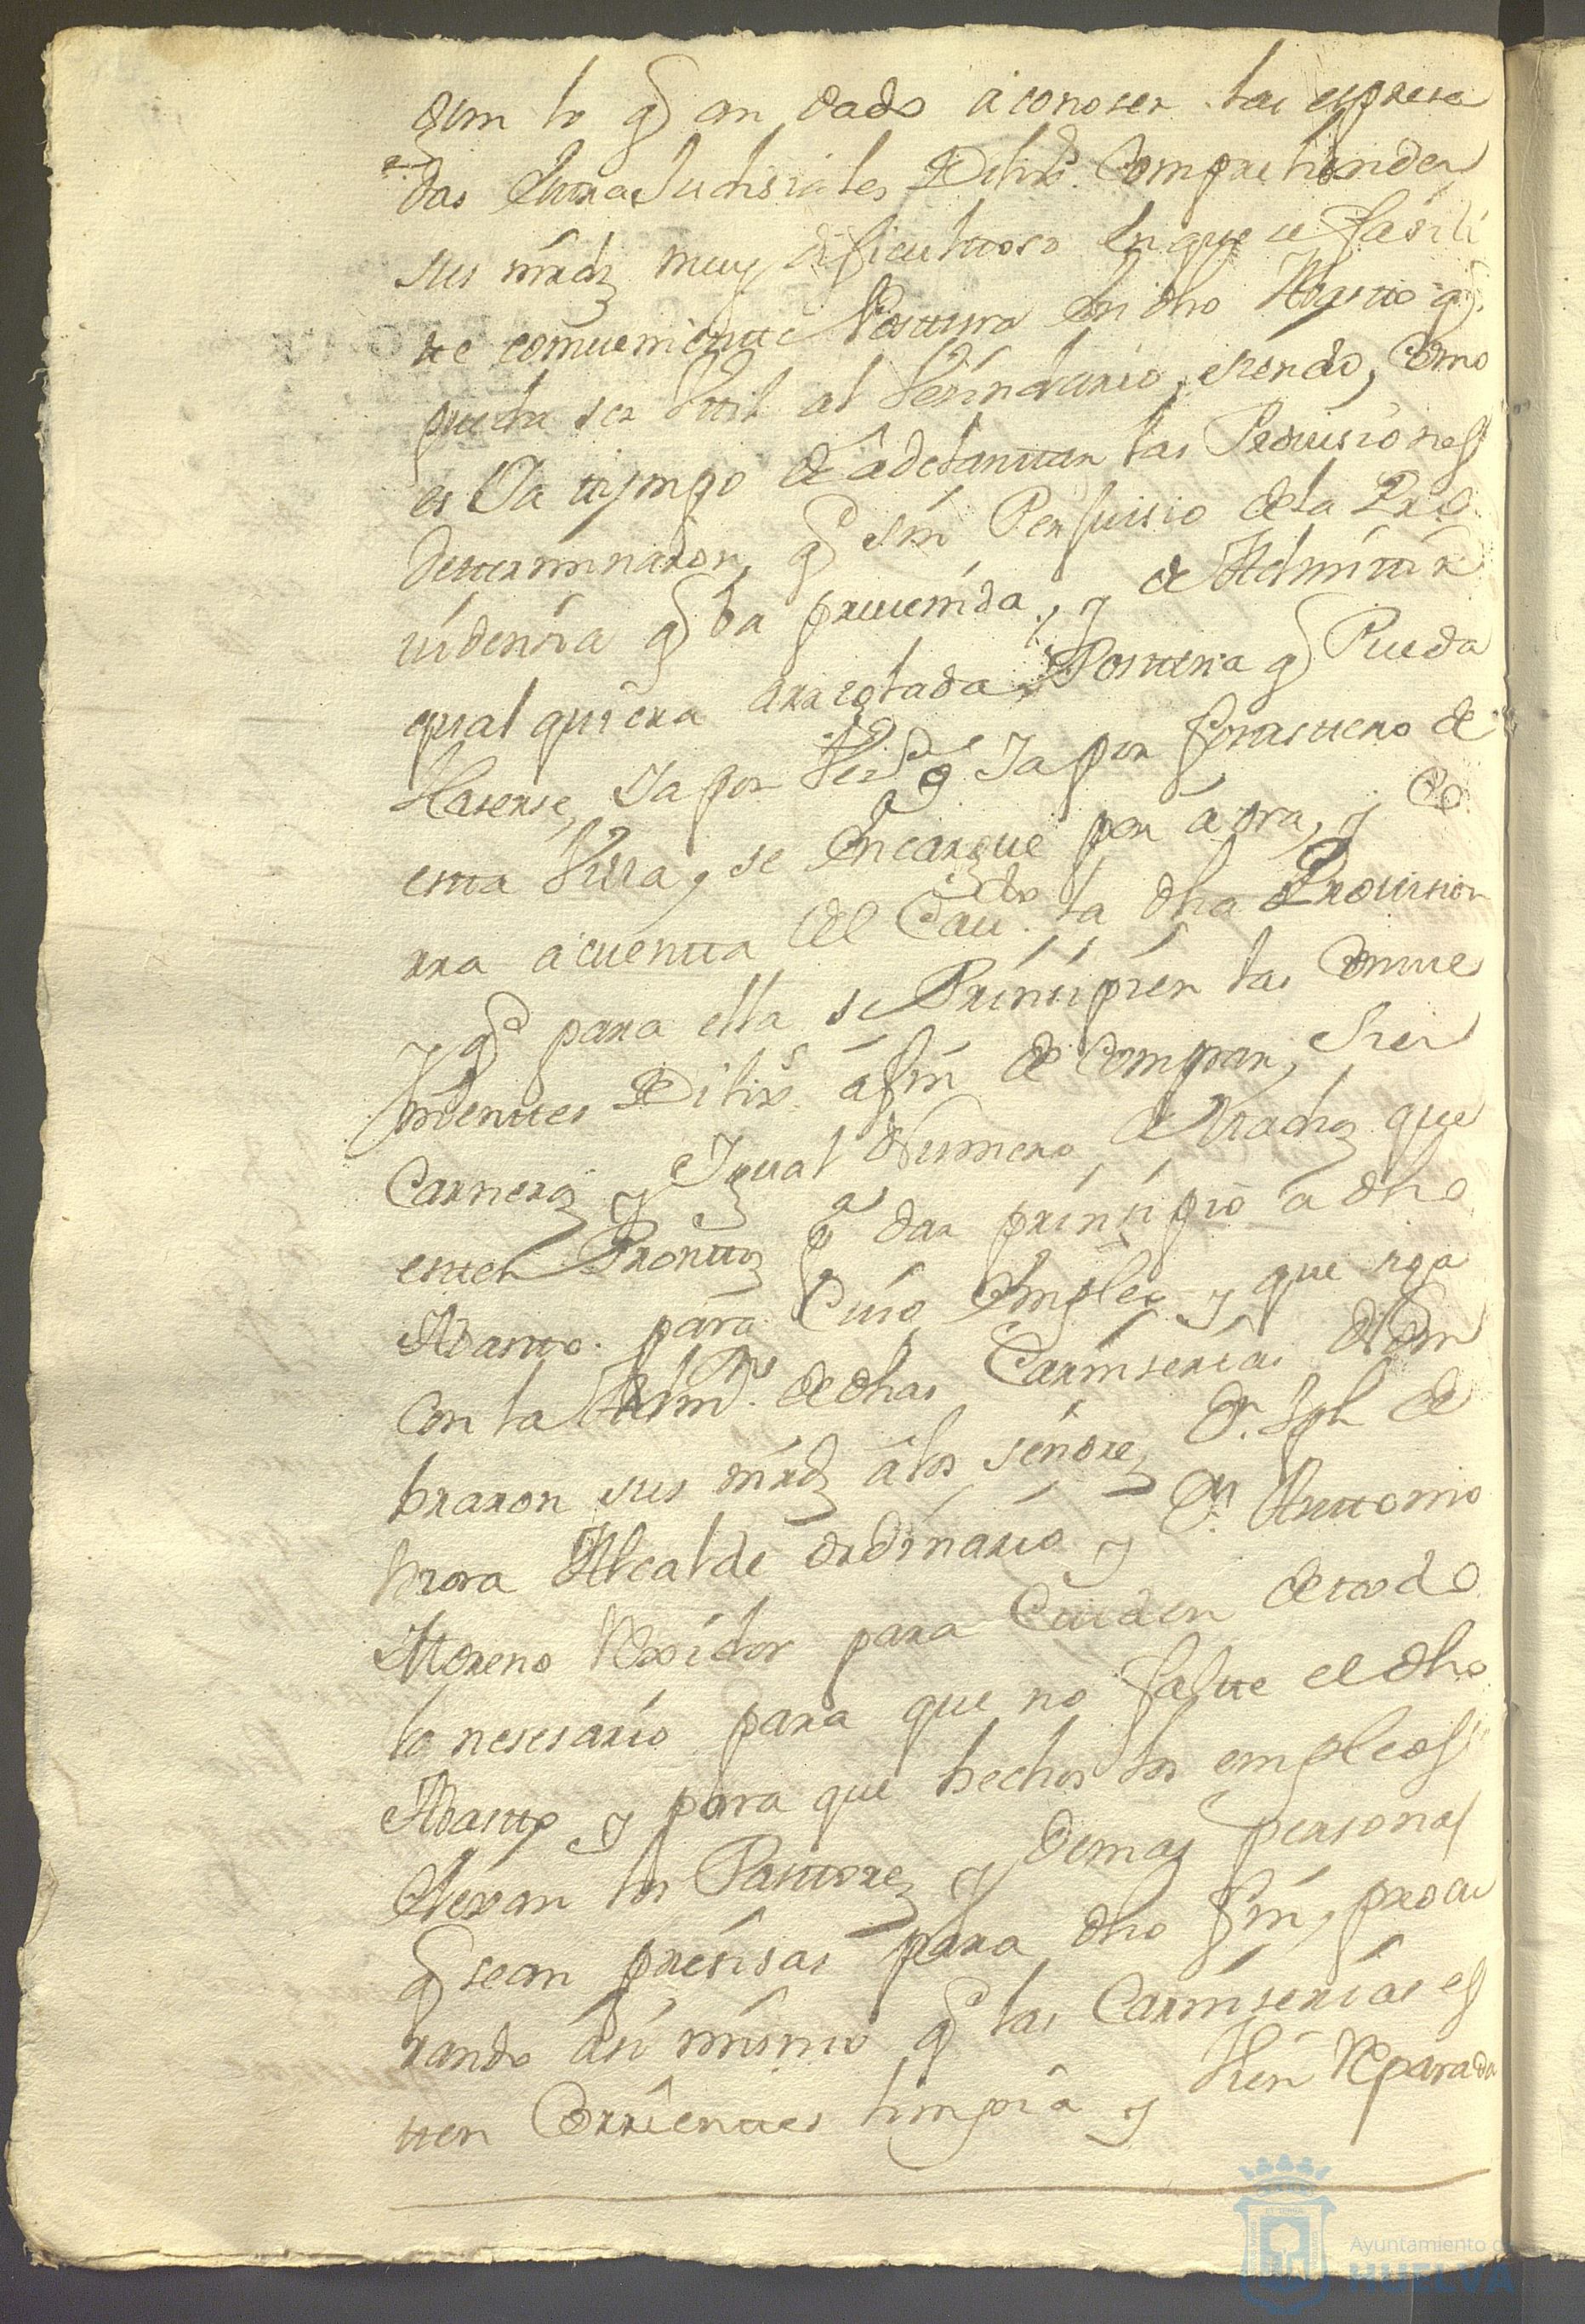 gun lo q̃ an dado aconoser las espresa
das extraJudisiales Dilixs. Comprehenden
sus mrds muy dificultuoso en que se fasili
tte comueniente Posttura en dho Abastto q.
pueda ser Vttil al Vesindario, esiendo, Como
es Ya ttiempo de adelanttar las Prouisiones
Dettermínaron q̃ sín Perjuisio dela Pro
uidensia q̃ ba preuenida, y de Admíttír
qualquiera arreglada Posttura q̃ Pueda
Haserse, Ya por Vesº. ó Ya por forasttero de
estta Villa, se Encargue por áora, y Co
rra acuentta del Cauᵈᵒ. la dha Prouision
y q̃ para ella se Prínsipíen las Comue
nienttes Dilixs. áfín de Comprar, Sien
Carneros y Ygual Numero de Machos que
estten Pronttos pª dar prínsipio a dho
Abastto. para Cuío Empleo y que siga
Con la Admⁿ. de dhas Carníserías Nom
braron sus mrds álos señores Dn. Jph de
Mora Alcalde ordínario y Dn. Anttonio
Moreno Rexídor para Cuiden de ttodo
lo nesesario para que no faltte el dho
Abastto y para que hechos los empleos
Elexan los Pasttores y demas personas
q̃ sean presisas para dho fín, procu
rando ási mísmo q̃ las Carníserías es
tten Corríenttes limpia y bien Reparada
Ayuntamiento de
HUELVA